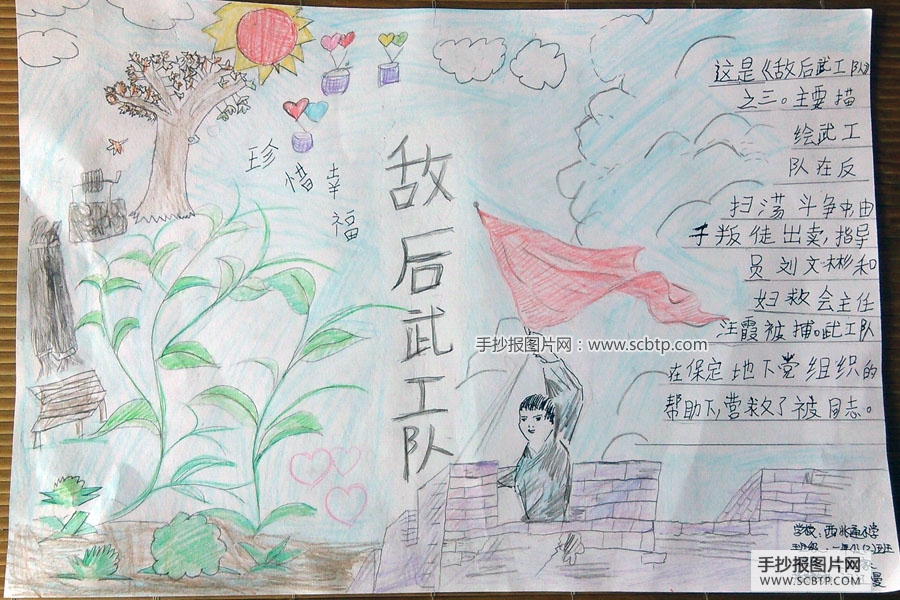 珍惜幸福
敌后武工队
这是《敌后武工队》
之三。主要描
绘武工
队在反
扫荡斗争中由
于叛徒出卖,指导
员刘文彬和
妇救会主任
汪霞被捕。武工队
在保定地下党组织的
帮助下,营救了被同志。
手抄报图片网:www.scbtp.com
学校:西北通小学
手抄报图片网
WWW.SCBTP.COM
曼